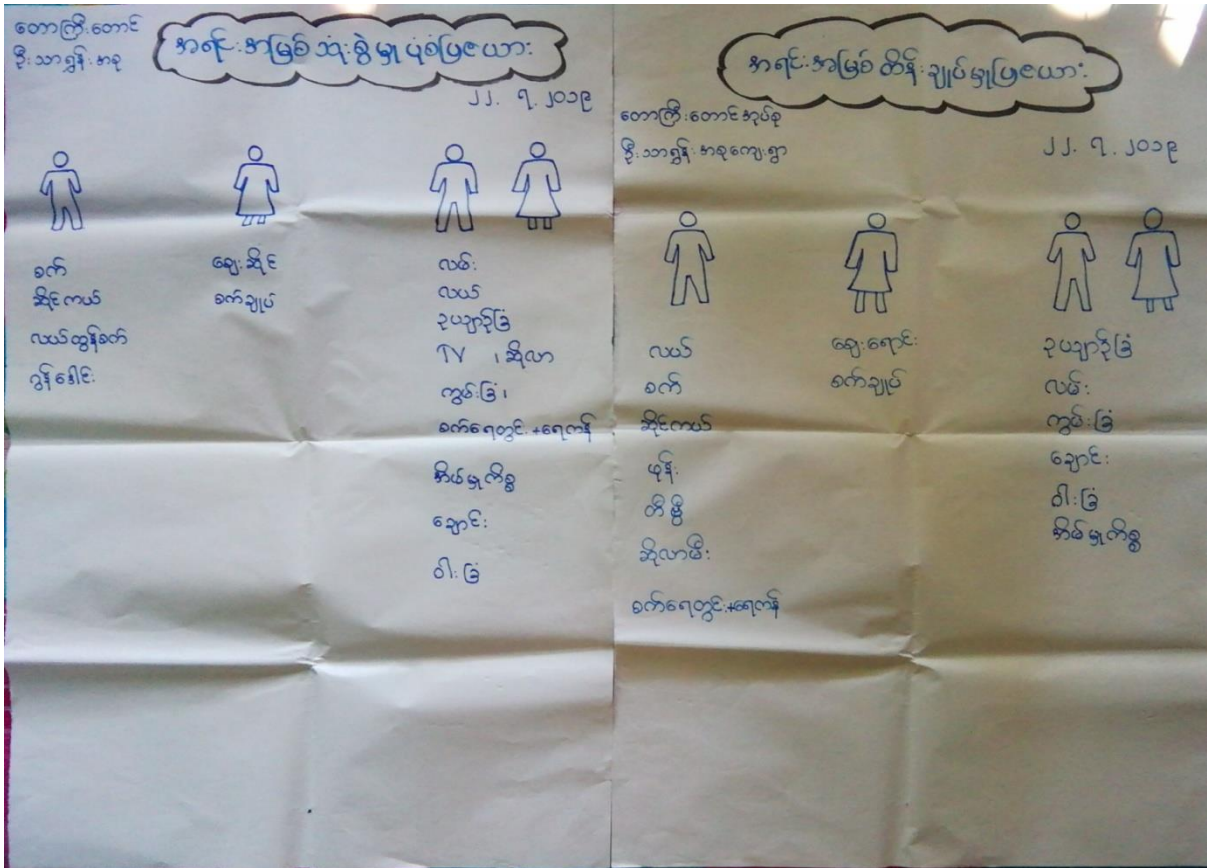 တောကြီးတောင်
ဦးသာရွှန်းအစု
အရင်းအမြစ်သုံးစွဲမှုပုံစံပြဇယား
၂၂.၇.၂၀၁၉
စက်
ဆိုင်ကယ်
လယ်ထွန်စက်
ဂွန်ဒေါင်း
ဈေးဆိုင်
စက်ချုပ်
လမ်း
လယ်
ဥယျာဉ်ခြံ
TV ၊ ဆိုလာ
ကွမ်းခြံ၊
စက်ရေတွင်း+ရေကန်
အိမ်မှုကိစ္စ
ချောင်း
ဝါးခြံ
အရင်းအမြစ်ထိန်းချုပ်မှုပြဇယား
တောကြီးတောင်အုပ်စု
ဦးသာရွှန်းအစုကျေးရွာ
၂၂.၇.၂၀၁၉
လယ်
စက်
ဆိုင်ကယ်
ဖုန်း
တီဗွီ
ဆိုလာမီး
စက်ရေတွင်း+ရေကန်
ဈေးရောင်း
စက်ချုပ်
ဥယျာဉ်ခြံ
လမ်း
ကွမ်းခြံ
ချောင်း
ဝါးခြံ
အိမ်မှုကိစ္စ